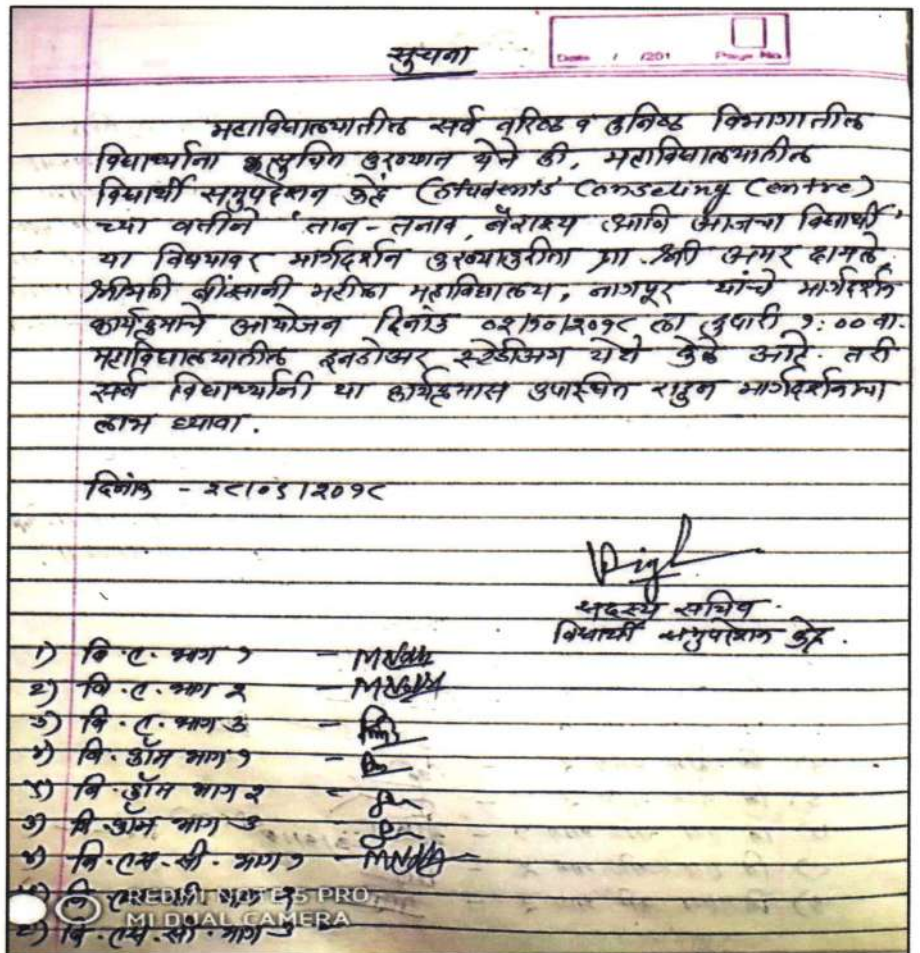 Date / /201 Page No.
सुचना
महाविद्यालयातील सर्व वरिष्ठ व कनिष्ठ विभागातील
विद्यार्थ्यांना सुचित करण्यात येते की, महाविद्यालयातील
विद्यार्थी समुपदेशन केंद्र Counseling Centre)
च्या वतीने 'तान-तनाव, नैराश्य आणि आजचा विद्यार्थी'
या विषयावर मार्गदर्शन करण्याकरीता प्रा. श्री अमर
श्रीमती बींझानी महीला महाविद्यालय, नागपूर यांचे मार्गदर्शन
कार्यक्रमाचे आयोजन दिनांक ०१/१०/२०१८ ला दुपारी १:०० वा.
महाविद्यालयातील इनडोअर स्टेडीअम येथे केले आहे. तरी
सर्व विद्यार्थ्यांनी या कार्यक्रमास उपस्थित राहुन मार्गदर्शनाचा
लाभ घ्यावा.
दिनांक - २८/०९/२०१८
सदस्य सचिव
विद्यार्थी समुपदेशन केंद्र.
१) बि.ए. भाग १ -
२) बि.ए. भाग २ -
३) बि.ए. भाग ३ -
४) बि.कॉम भाग १ -
५) बि.कॉम भाग २ -
६) बि.कॉम भाग ३ -
७) बि.एस.सी. भाग १ -
REDMI NOTE 5 PRO
MI DUAL CAMERA
९) बि.एस.सी. भाग ३